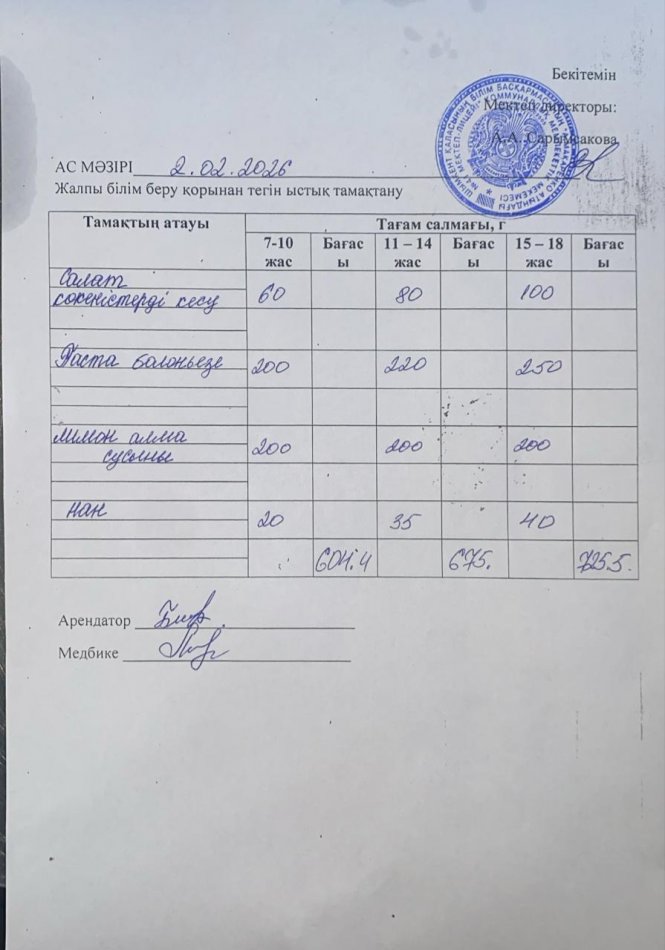 Бекітемін
Мектеп директоры:
А.А. Сарымсакова
АС МӘЗІРІ 2.02.2026
Жалпы білім беру қорынан тегін ыстық тамақтану
Тамақтың атауы Тағам салмағы, г
7-10 жас Бағасы 11 – 14 жас Бағасы 15 – 18 жас Бағасы
Салат
көкөністерді кесу 60 80 100
Паста болоньезе 200 220 250
лимон алма
сусыны 200 200 200
нан 20 35 40
604.4 675. 725.5.
Арендатор
Медбике